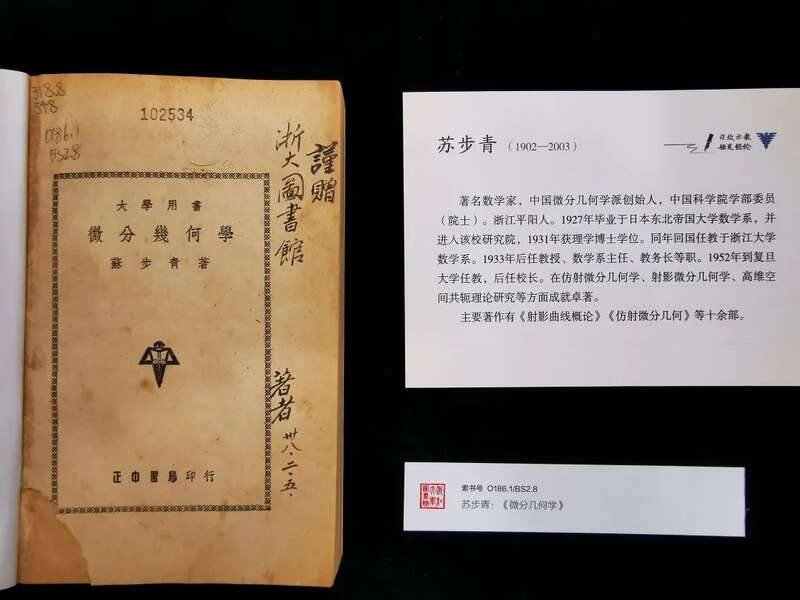 318.8
548
O186.1
BS2.8
102534
謹贈
浙大圖書館
大學用書
微分幾何學
蘇步青著
著者 卅八·二·五·
正中書局印行
苏步青（1902—2003）
著名数学家，中国微分几何学派创始人，中国科学院学部委员
（院士）。浙江平阳人。1927年毕业于日本东北帝国大学数学系，并
进入该校研究院，1931年获理学博士学位。同年回国任教于浙江大学
数学系。1933年后任教授、数学系主任、教务长等职。1952年到复旦
大学任教，后任校长。在仿射微分几何学、射影微分几何学、高维空
间共轭理论研究等方面成就卓著。
主要著作有《射影曲线概论》《仿射微分几何》等十余部。
索书号 O186.1/BS2.8
苏步青：《微分几何学》